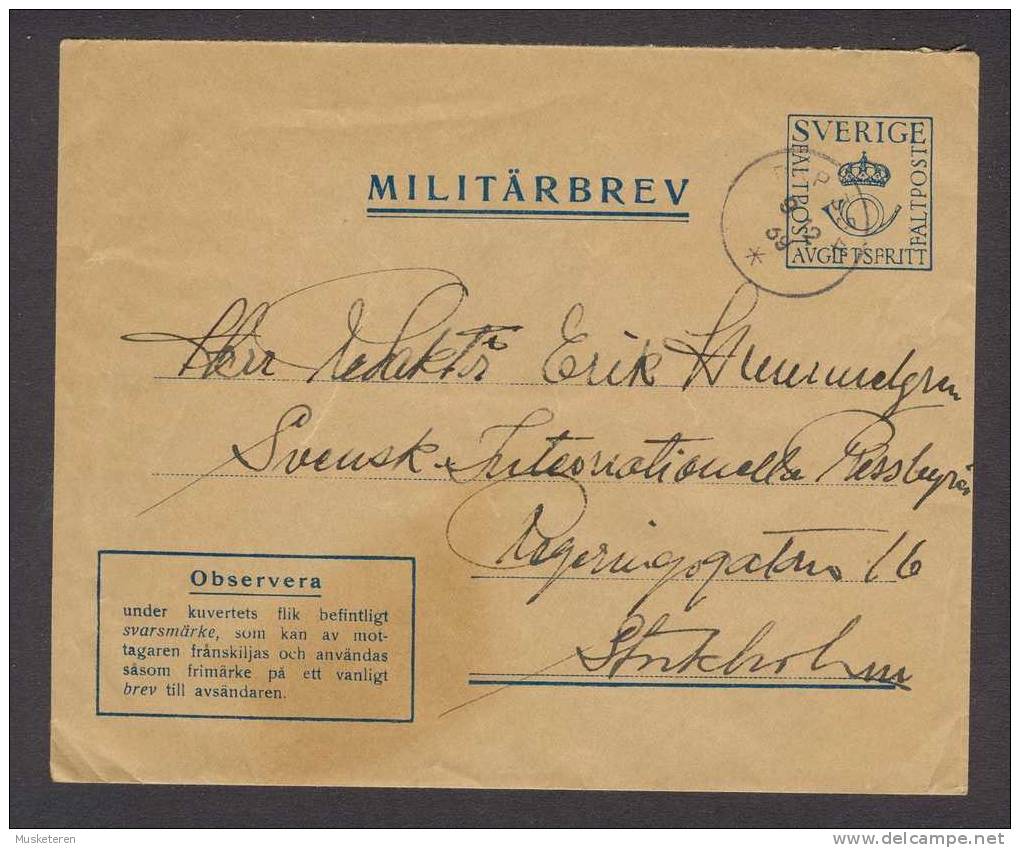 SVERIGE
FÄLTPOST
FÄLTPOST
AVGIFTSFRITT
MILITÄRBREV
9 12
59
Herr Redaktör Erik
Svensk-Internationella Pressbyrån
Regeringsgatan 16
Stockholm
Observera
under kuvertets flik befintligt
svarsmärke, som kan av mot-
tagaren frånskiljas och användas
såsom frimärke på ett vanligt
brev till avsändaren.
Musketeren
http://www.delcampe.net